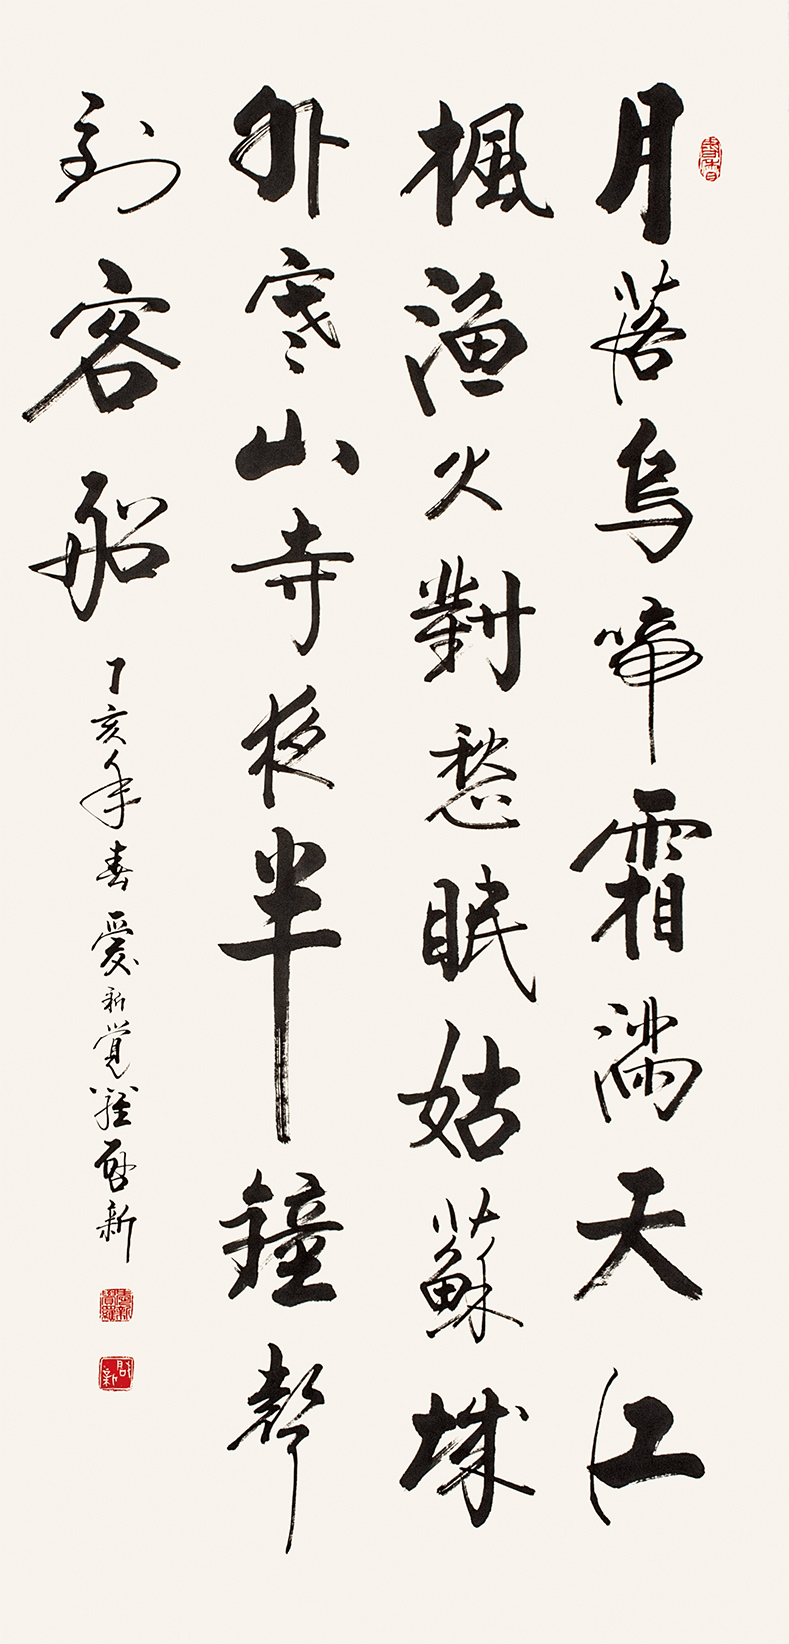 月落烏啼霜滿天江
楓漁火對愁眠姑蘇城
外寒山寺夜半鐘聲
到客船
丁亥年春愛新覺羅啟新
啟新